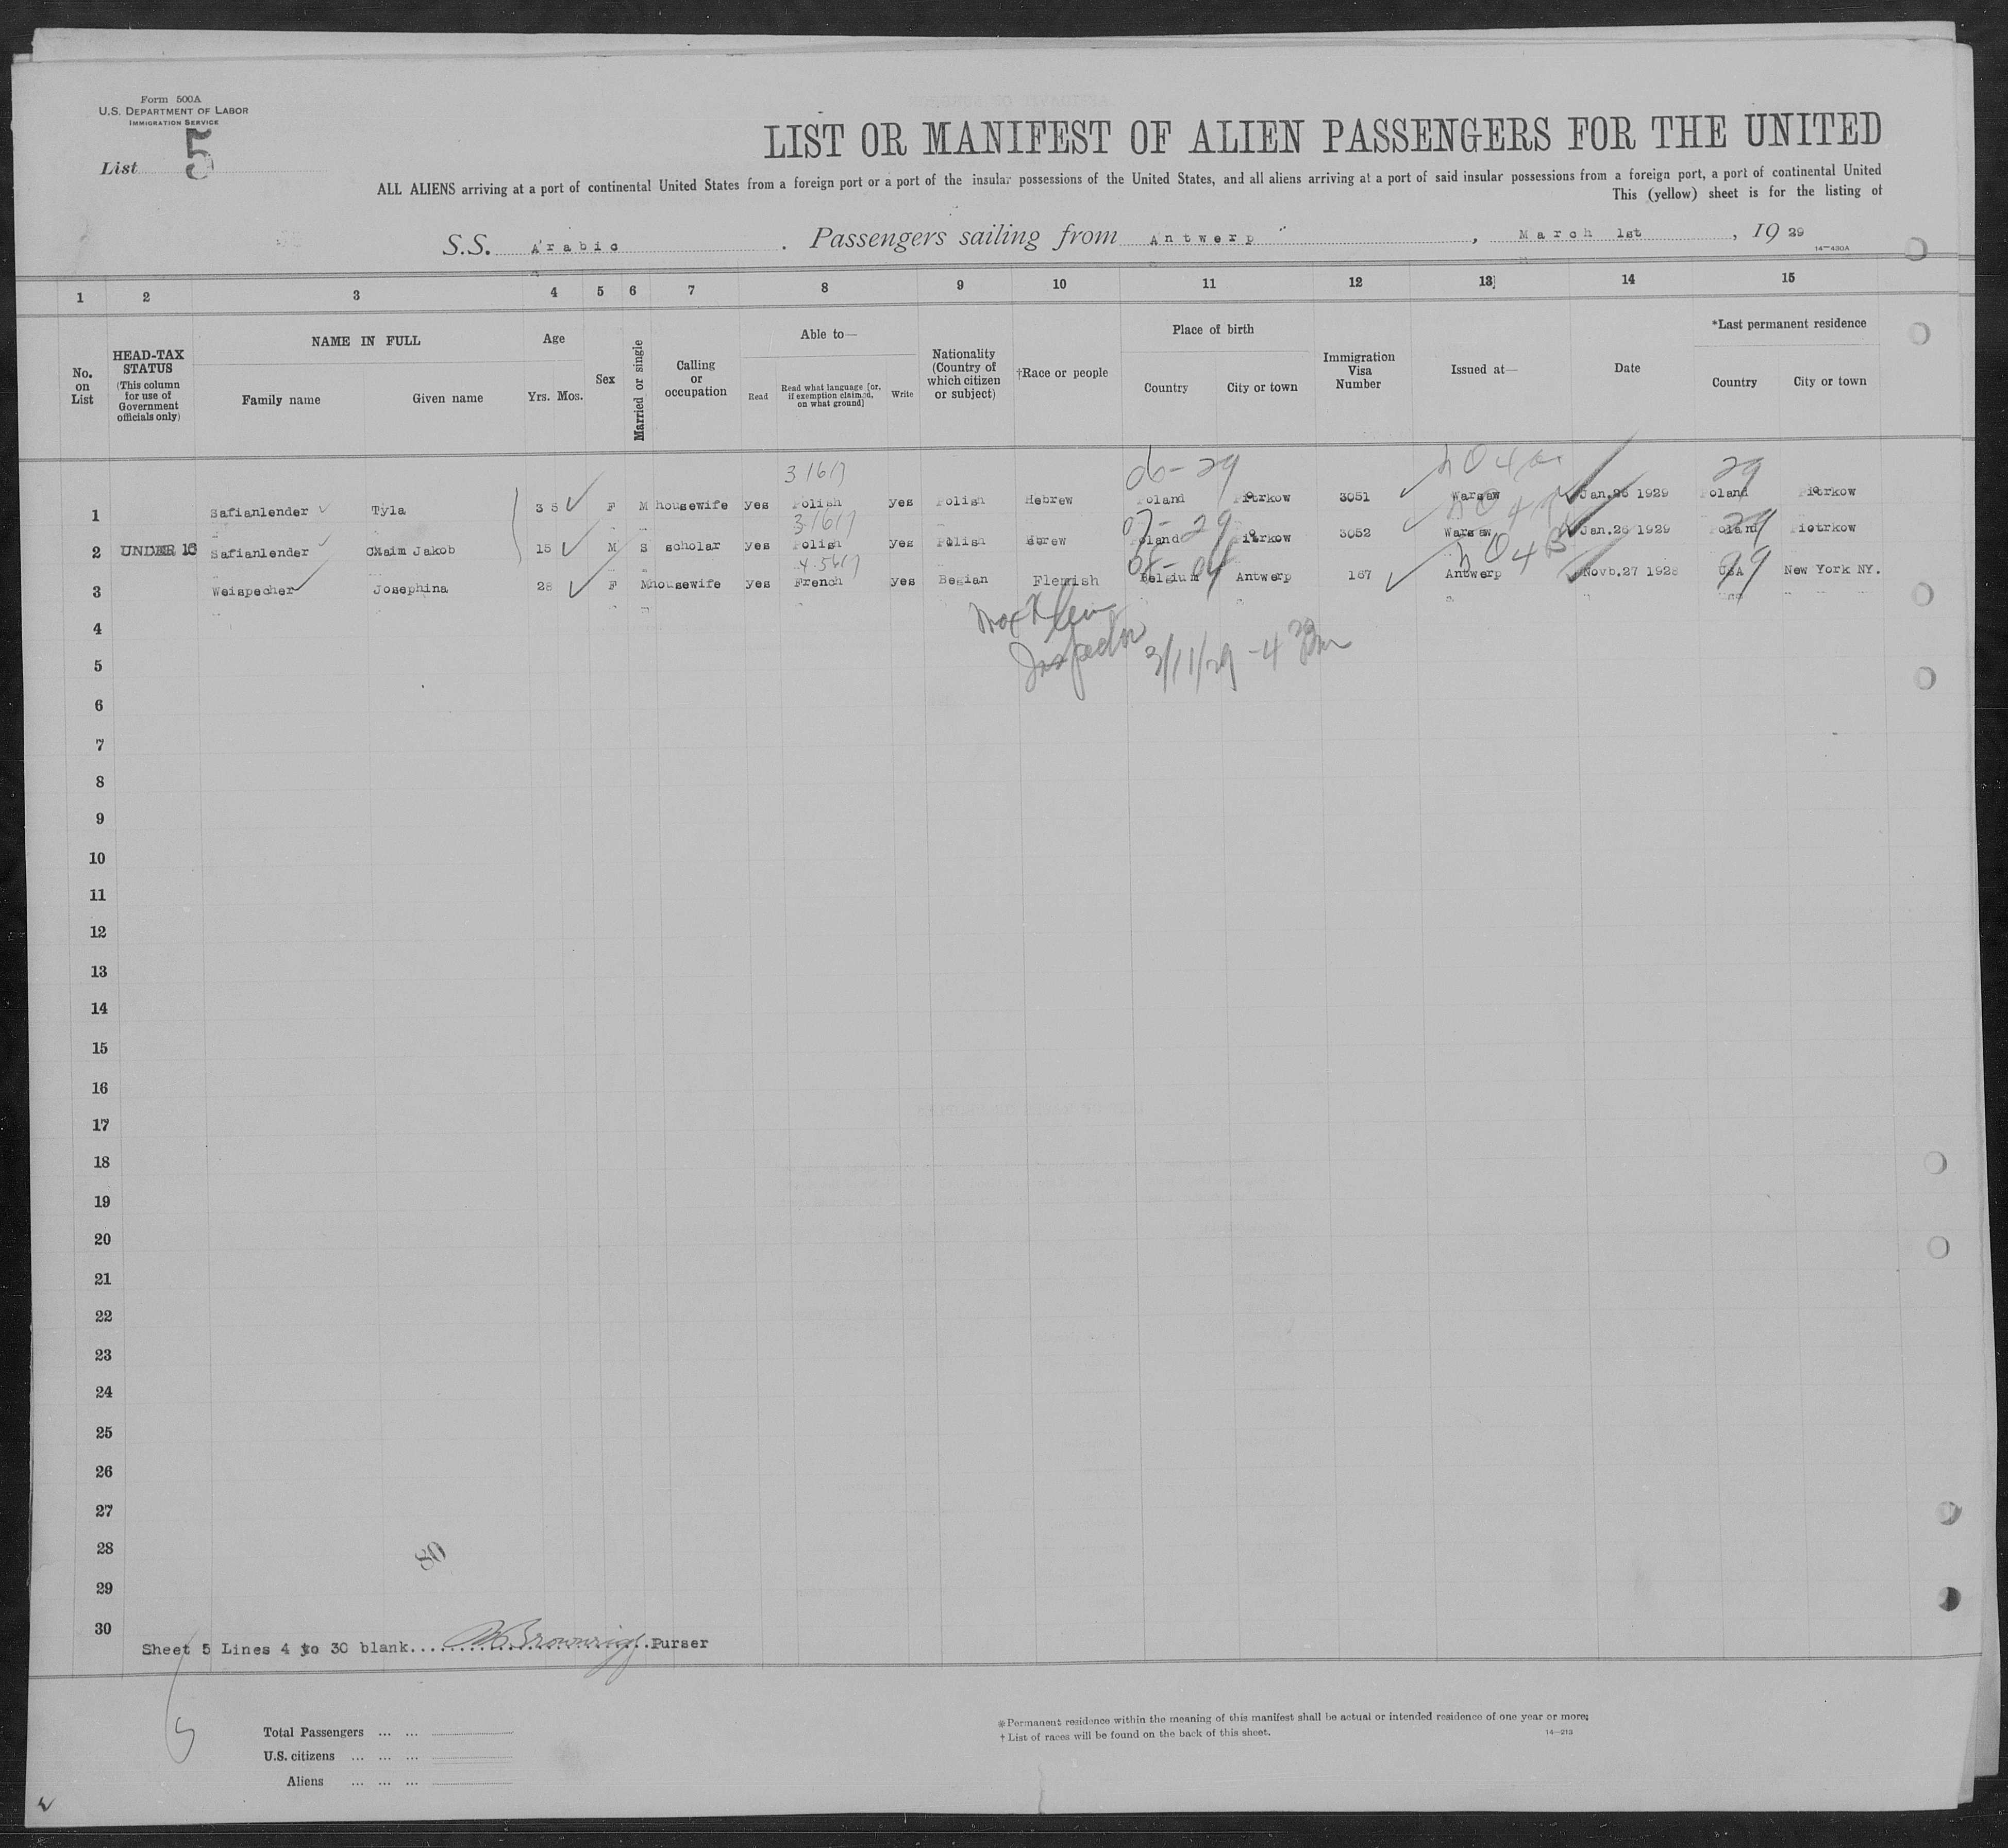 Form 500A
U.S. DEPARTMENT OF LABOR
IMMIGRATION SERVICE
List 5
LIST OR MANIFEST OF ALIEN PASSENGERS FOR THE UNITED
ALL ALIENS arriving at a port of continental United States from a foreign port or a port of the insular possessions of the United States, and all aliens arriving at a port of said insular possessions from a foreign port, a port of continental United
This (yellow) sheet is for the listing of
S.S. Arabic . Passengers sailing from Antwerp , March 1st , 19 29
14—430A
1 2 3 4 5 6 7 8 9 10 11 12 13 14 15
No. on List
HEAD-TAX STATUS (This column for use of Government officials only)
NAME IN FULL
Family name Given name
Age
Yrs. Mos.
Sex
Married or single
Calling or occupation
Able to—
Read
Read what language [or, if exemption claimed, on what ground]
Write
Nationality (Country of which citizen or subject)
†Race or people
Place of birth
Country City or town
Immigration Visa Number
Issued at—
Date
*Last permanent residence
Country City or town
3 16 17 06-29 29
1 Safianlender Tyla 35 F M housewife yes Polish yes Polish Hebrew Poland Piotrkow 3051 Warsaw Jan.26 1929 Poland Piotrkow
3 16 17 07-29 29
2 UNDER 16 Safianlender Chaim Jakob 15 M S scholar yes Polish yes Polish Hebrew Poland Piotrkow 3052 Warsaw Jan.26 1929 Poland Piotrkow
4 5 6 17 08-04 99
3 Weispecher Josephina 28 F M housewife yes French yes Begian Flemish Belgium Antwerp 167 Antwerp Novb.27 1928 USA New York NY.
Max Klein
Inspector 3/11/29 - 4 30 Pm
4
5
6
7
8
9
10
11
12
13
14
15
16
17
18
19
20
21
22
23
24
25
26
27
28
80
29
30
Sheet 5 Lines 4 to 30 blank.... Brownrigg ....Purser
Total Passengers ... ...
U.S. citizens ... ... ...
Aliens ... ... ...
*Permanent residence within the meaning of this manifest shall be actual or intended residence of one year or more.
† List of races will be found on the back of this sheet.
14—213